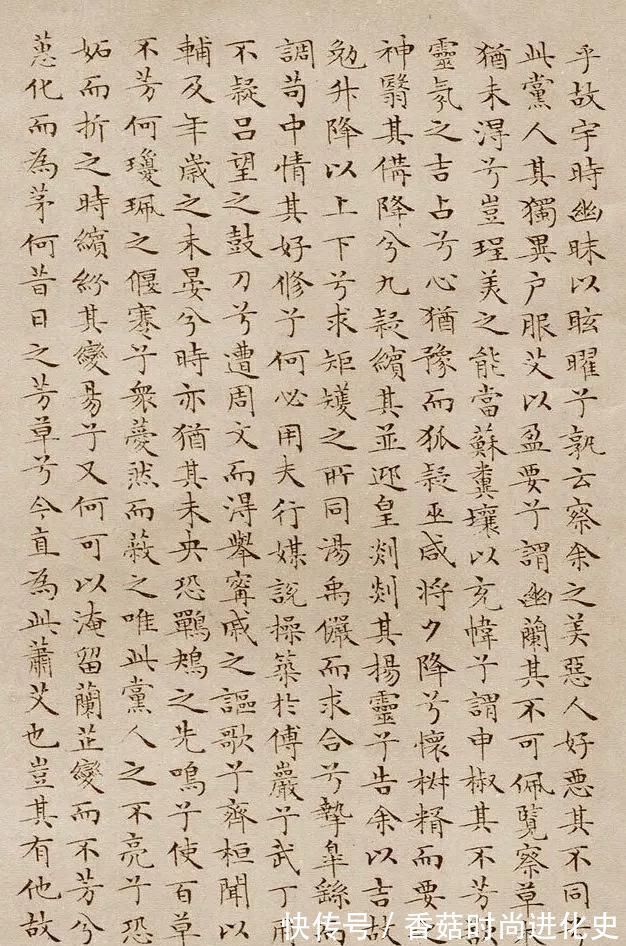 乎故宇時幽昧以眩曜兮孰云察余之美惡人好惡其不同
此黨人其獨異戶服艾以盈要兮謂幽蘭其不可佩覽察草
猶未得兮豈珵美之能當蘇糞壤以充幃兮謂申椒其不芳
靈氛之吉占兮心猶豫而狐疑巫咸將夕降兮懷椒糈而要
神翳其備降兮九疑繽其並迎皇剡剡其揚靈兮告余以吉故
勉升降以上下兮求矩矱之所同湯禹儼而求合兮摯皐繇
調苟中情其好修兮何必用夫行媒說操築於傅巖兮武丁用
不疑呂望之鼓刀兮遭周文而得舉甯戚之謳歌兮齊桓聞以
輔及年歲之未晏兮時亦猶其未央恐鷤鴂之先鳴兮使百草
不芳何瓊珮之偃蹇兮衆薆然而蔽之唯此黨人之不亮兮恐
妬而折之時繽紛其變易兮又何可以淹留蘭芷變而不芳兮
蕙化而為茅何昔日之芳草兮今直為此蕭艾也豈其有他故
快传号/香菇时尚进化史